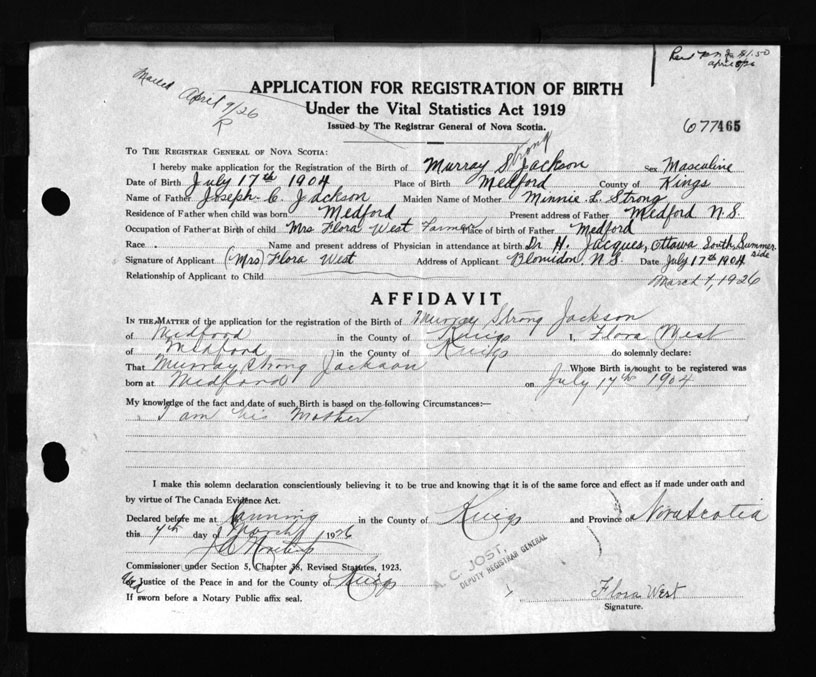 Mailed April 9/26
R
April 8/26
APPLICATION FOR REGISTRATION OF BIRTH
Under the Vital Statistics Act 1919
Issued by The Registrar General of Nova Scotia.
677465
TO THE REGISTRAR GENERAL OF NOVA SCOTIA:
Strong
I hereby make application for the Registration of the Birth of Murray S. Jackson Sex Masculine
Date of Birth July 17th 1904 Place of Birth Medford County of Kings
Name of Father Joseph C. Jackson Maiden Name of Mother Minnie L. Strong
Residence of Father when child was born Medford Present address of Father Medford N.S.
Occupation of Father at Birth of child Mrs Flora West Farmer Place of birth of Father Medford
Race . Name and present address of Physician in attendance at birth Dr H. Jacques, Ottawa South, Summer
side
Signature of Applicant (Mrs) Flora West Address of Applicant Blomidon. N.S. Date July 17th 1904
Relationship of Applicant to Child March 4, 1926
AFFIDAVIT
IN THE MATTER of the application for the registration of the Birth of Murray Strong Jackson
of Medford in the County of Kings I, Flora West
of Medford in the County of Kings do solemnly declare:
That Murray Strong Jackson Whose Birth is sought to be registered was
born at Medford on July 17th 1904
My knowledge of the fact and date of such Birth is based on the following Circumstances:—
I am his Mother
I make this solemn declaration conscientiously believing it to be true and knowing that it is of the same force and effect as if made under oath and
by virtue of The Canada Evidence Act.
Declared before me at Canning in the County of Kings and Province of Nova Scotia
this 4th day of March 1926
Commissioner under Section 5, Chapter 38, Revised Statutes, 1923.
or Justice of the Peace in and for the County of Kings
If sworn before a Notary Public affix seal.
C. JOST,
DEPUTY REGISTRAR GENERAL
Flora West
Signature.